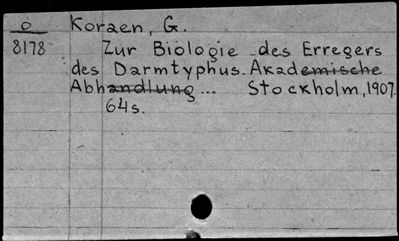 O Koraen, G.
8178 Zur Biologie des Erregers
des Darmtyphus. Akademische
Abhandlung ... Stockholm, 1907.
64s.